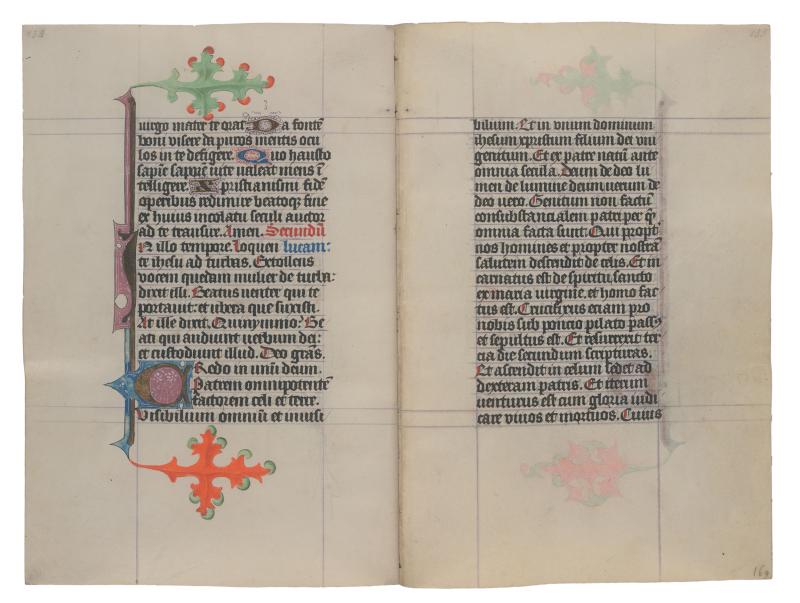 uirgo mater te quat Da fontē
boni visere da puros mentis ocu
los in te defigere. Quo hausto
sapīe sapore iuste ualeat mens ī
telligere. Xpristianismi fidē
operibus redimire beatoq; fine
ex huius incolatu seculi auctor
ad te transire. Amen. Secundū
In illo tempore. loquen lucam:
te ihesu ad turbas. Extollens
vocem quedam mulier de turba:
dixit illi. Beatus uenter qui te
portauit: et ubera que suxisti.
At ille dixit. Quinymmo: Be
ati qui audiunt uerbum dei:
et custodiunt illud. Deo grās.
Credo in unū deum.
Patrem omnipotentē
factorem celi et terre.
Visibilium omniū et inuisi
bilium. Et in vnum dominum
ihesum xpristum filium dei vni
genitum. Et ex patre natū ante
omnia secula. Deum de deo lu
men de lumine deum uerum de
deo uero. Genitum non factū
consubstancialem patri per q̄
omnia facta sunt. Qui propt
nos homines et propter nostrā
salutem descendit de celis. Et in
carnatus est de spiritu sancto
ex maria uirgine. et homo fac
tus est. Crucifixus eciam pro
nobis sub poncio pilato passꝰ
et sepultus est. Et resurrexit ter
cia die secundum scripturas.
Et ascendit in celum sedet ad
dexteram patris. Et iterum
uenturus est cum gloria iudi
care viuos et mortuos. Cuius